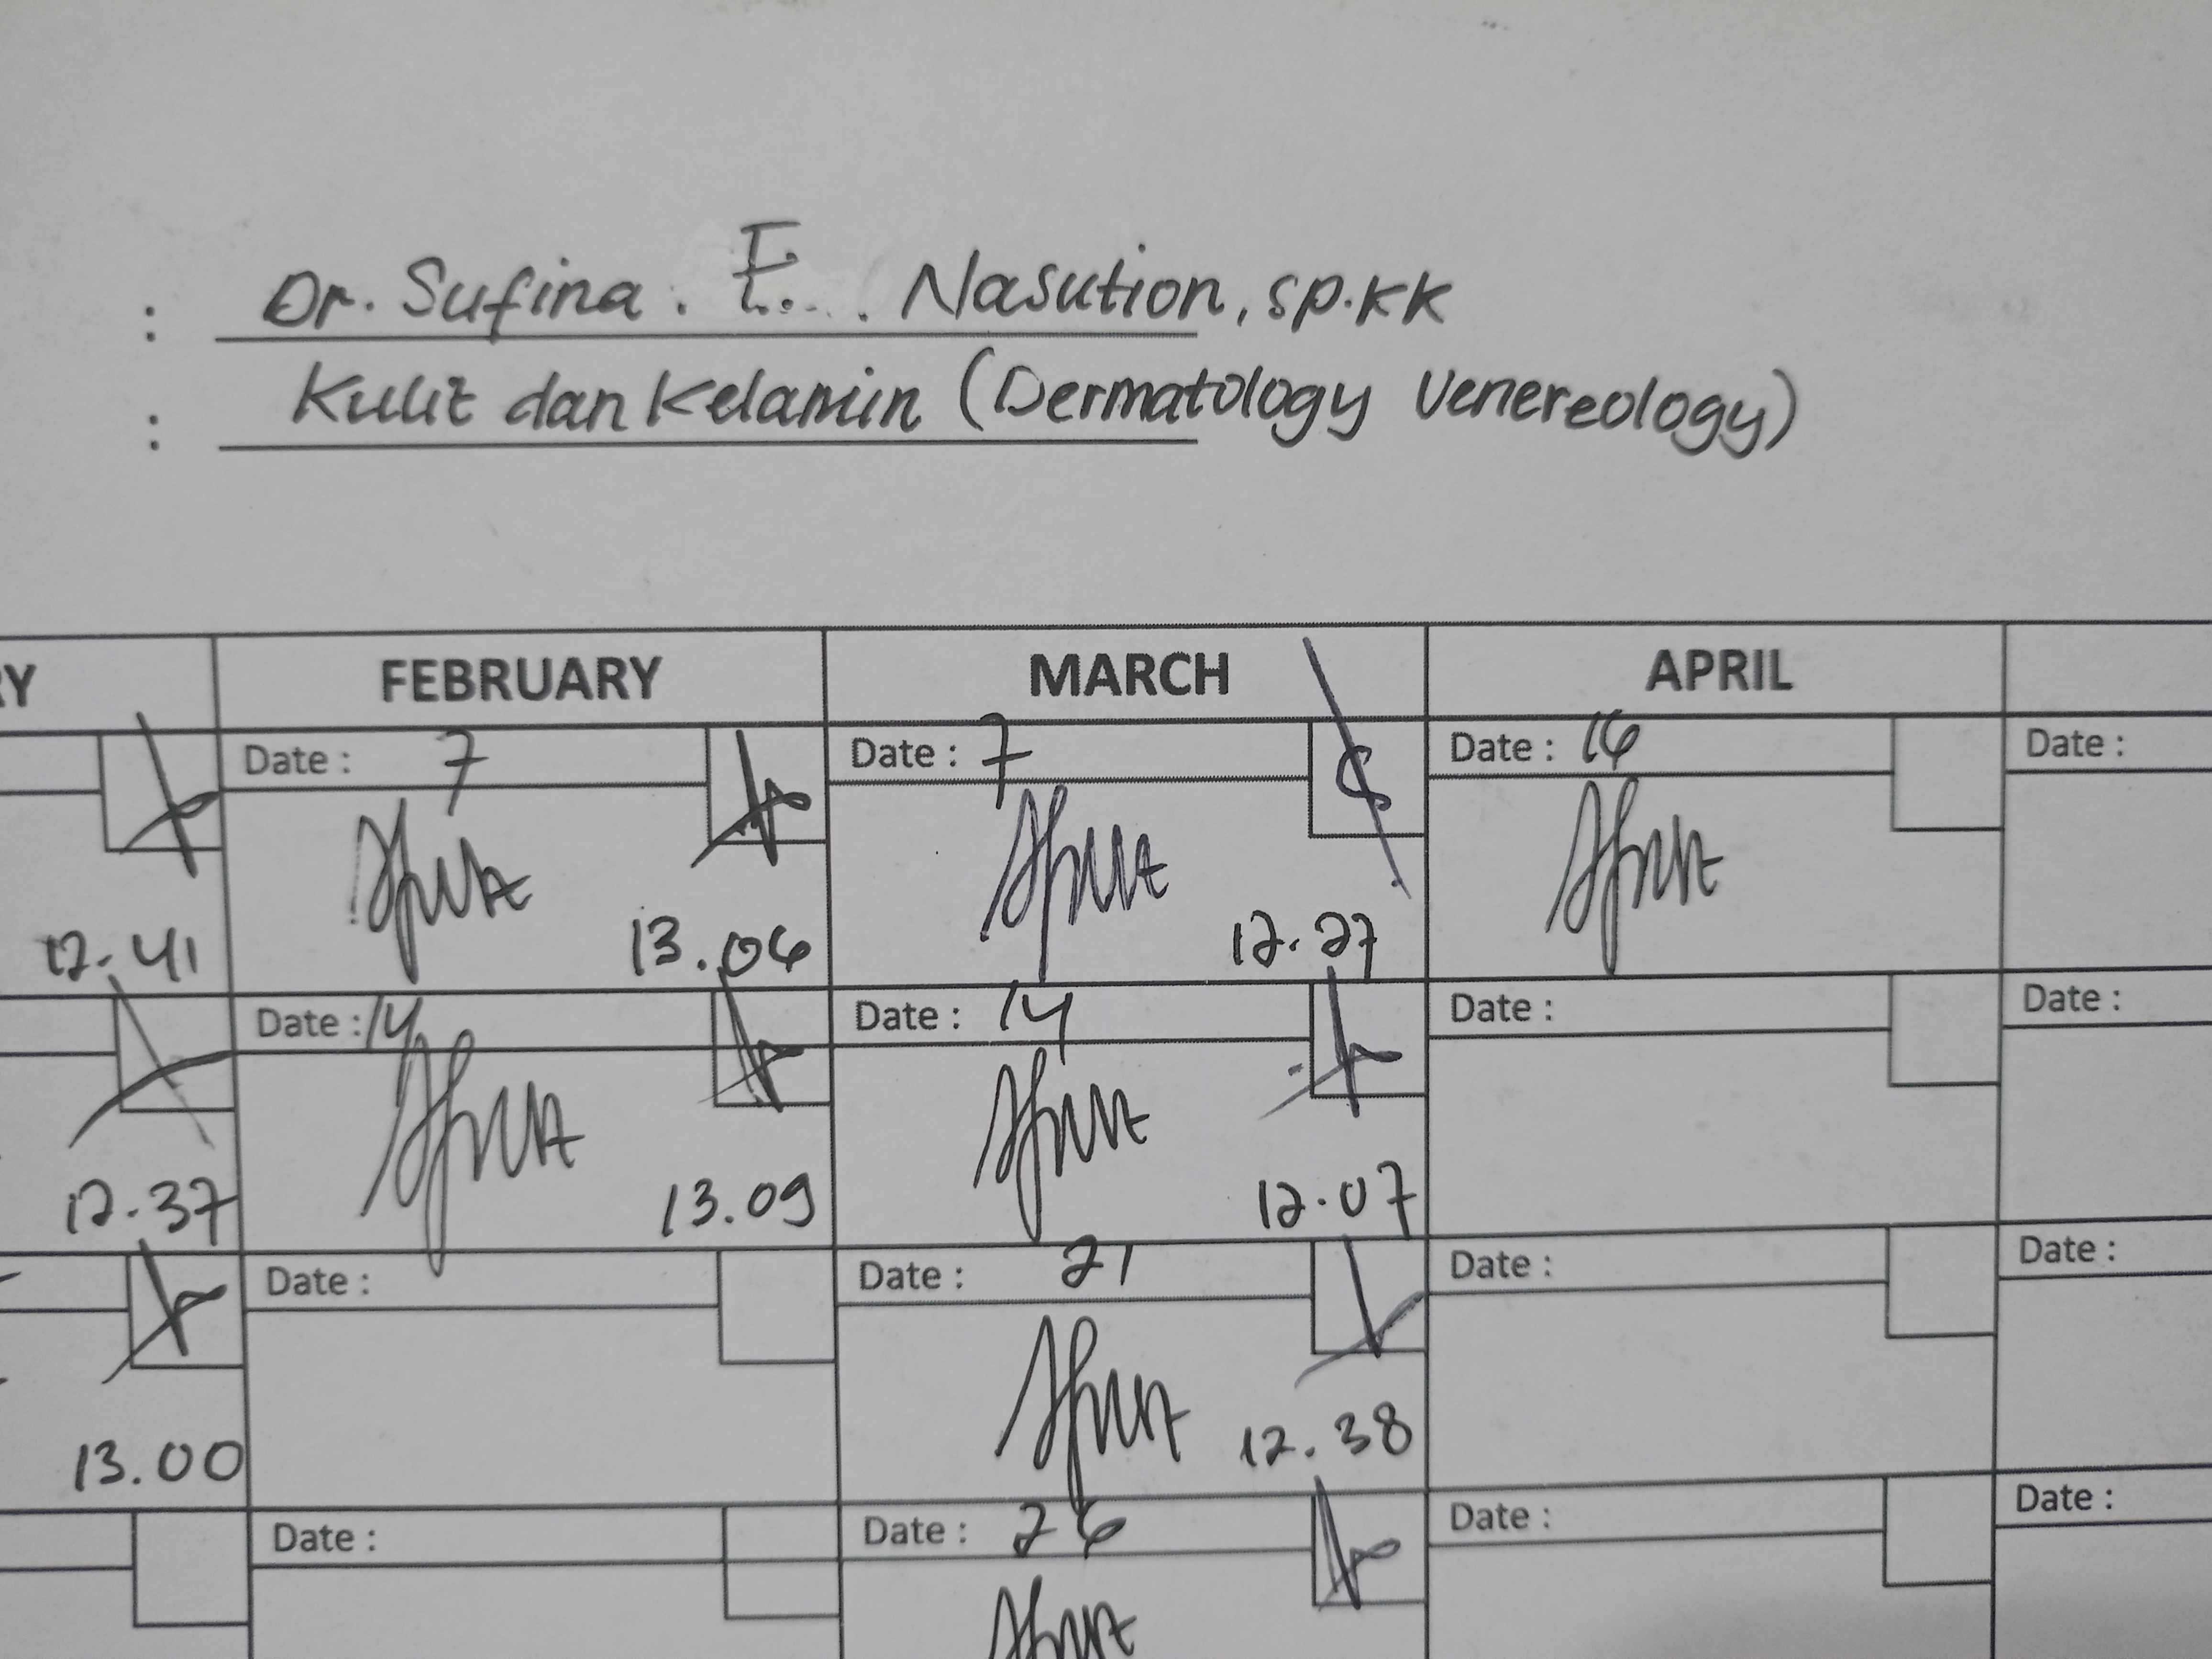 : Dr. Sufina. F. Nasution, sp.KK
: Kulit dan Kelamin (Dermatology Venereology)
FEBRUARY MARCH APRIL
Date : 7 Date : 7 Date : 16 Date :
12.41 13.06 12.27
Date : 14 Date : 14 Date : Date :
12.37 13.09 12.07
Date : Date : 21 Date : Date :
13.00 12.38
Date : Date : 26 Date : Date :